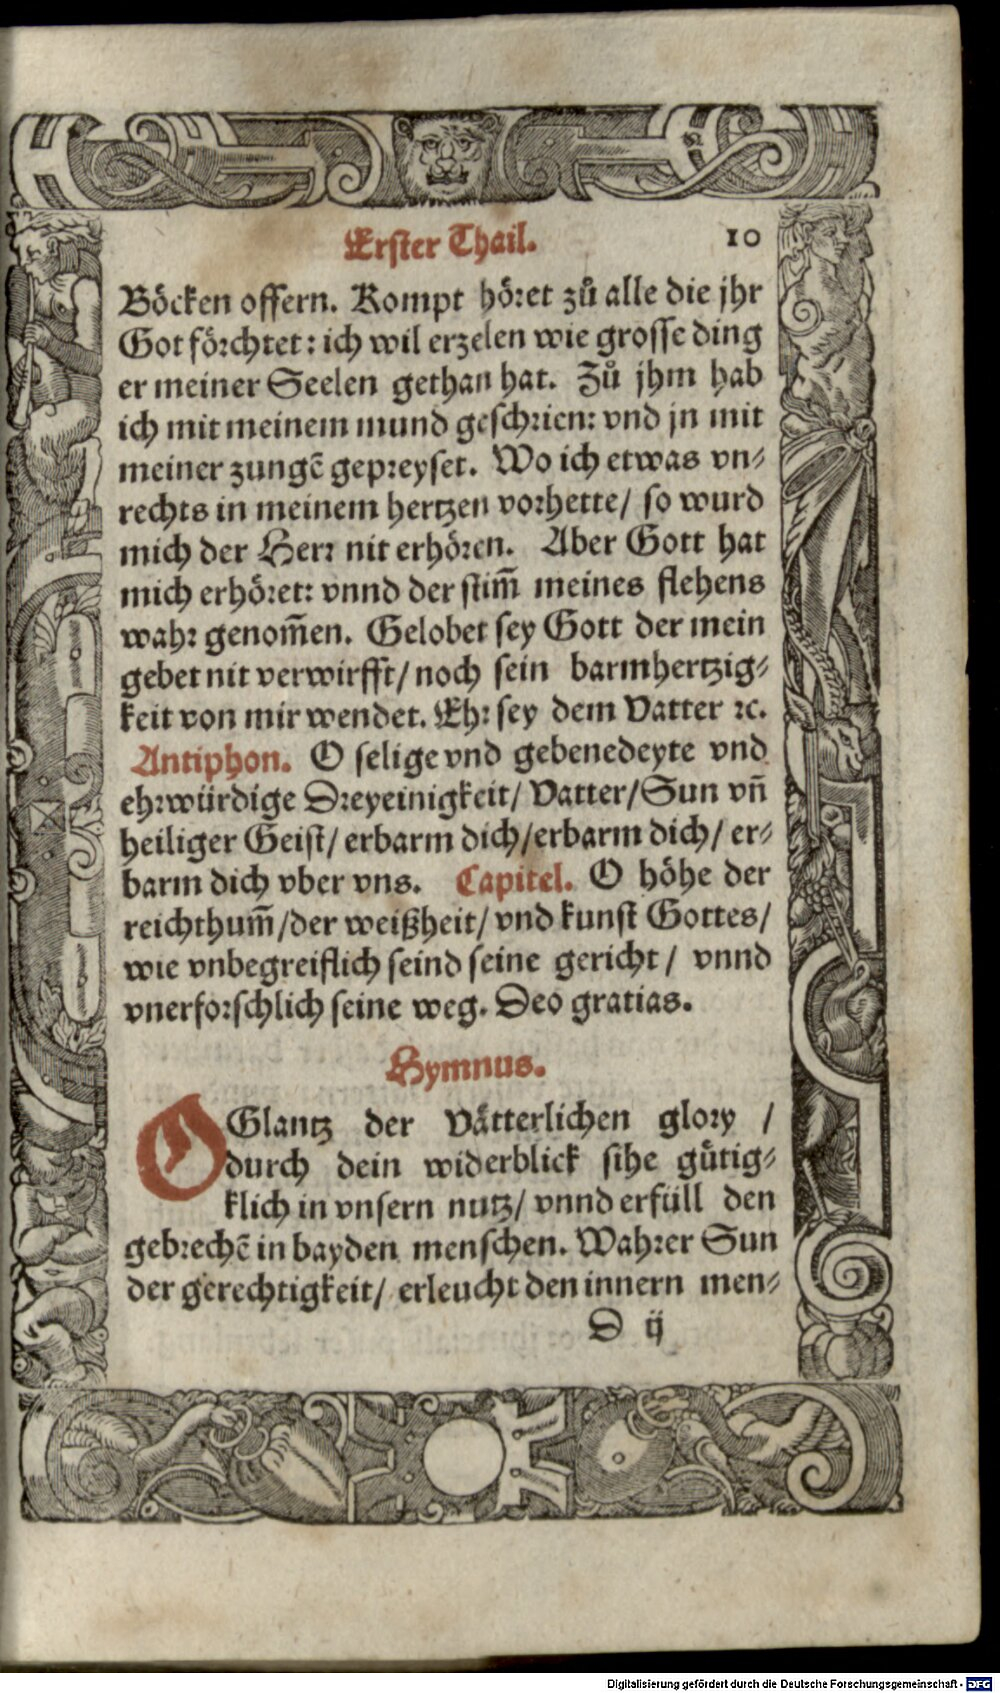 Erster Thail. 10
Böcken offern. Kompt höret zů alle die jhr
Got förchtet: ich wil erzelen wie grosse ding
er meiner Seelen gethan hat. Zů jhm hab
ich mit meinem mund geschrien: vnd jn mit
meiner zungẽ gepreyset. Wo ich etwas vn⸗
rechts in meinem hertzen vorhette/ so wurd
mich der Herr nit erhören. Aber Gott hat
mich erhöret: vnnd der stim̃ meines flehens
wahr genom̃en. Gelobet sey Gott der mein
gebet nit verwirfft/ noch sein barmhertzig⸗
keit von mir wendet. Ehr sey dem Vatter ꝛc.
Antiphon. O selige vnd gebenedeyte vnd
ehrwürdige Dreyeinigkeit/ Vatter/ Sun vñ
heiliger Geist/ erbarm dich/ erbarm dich/ er⸗
barm dich vber vns. Capitel. O höhe der
reichthum̃/ der weißheit/ vnd kunst Gottes/
wie vnbegreiflich seind seine gericht/ vnnd
vnerforschlich seine weg. Deo gratias.
Hymnus.
O Glantz der Vätterlichen glory /
durch dein widerblick sihe gůtig⸗
klich in vnsern nutz/ vnnd erfüll den
gebrechẽ in bayden menschen. Wahrer Sun
der gerechtigkeit/ erleucht den innern men⸗
D ij
Digitalisierung gefördert durch die Deutsche Forschungsgemeinschaft - DFG